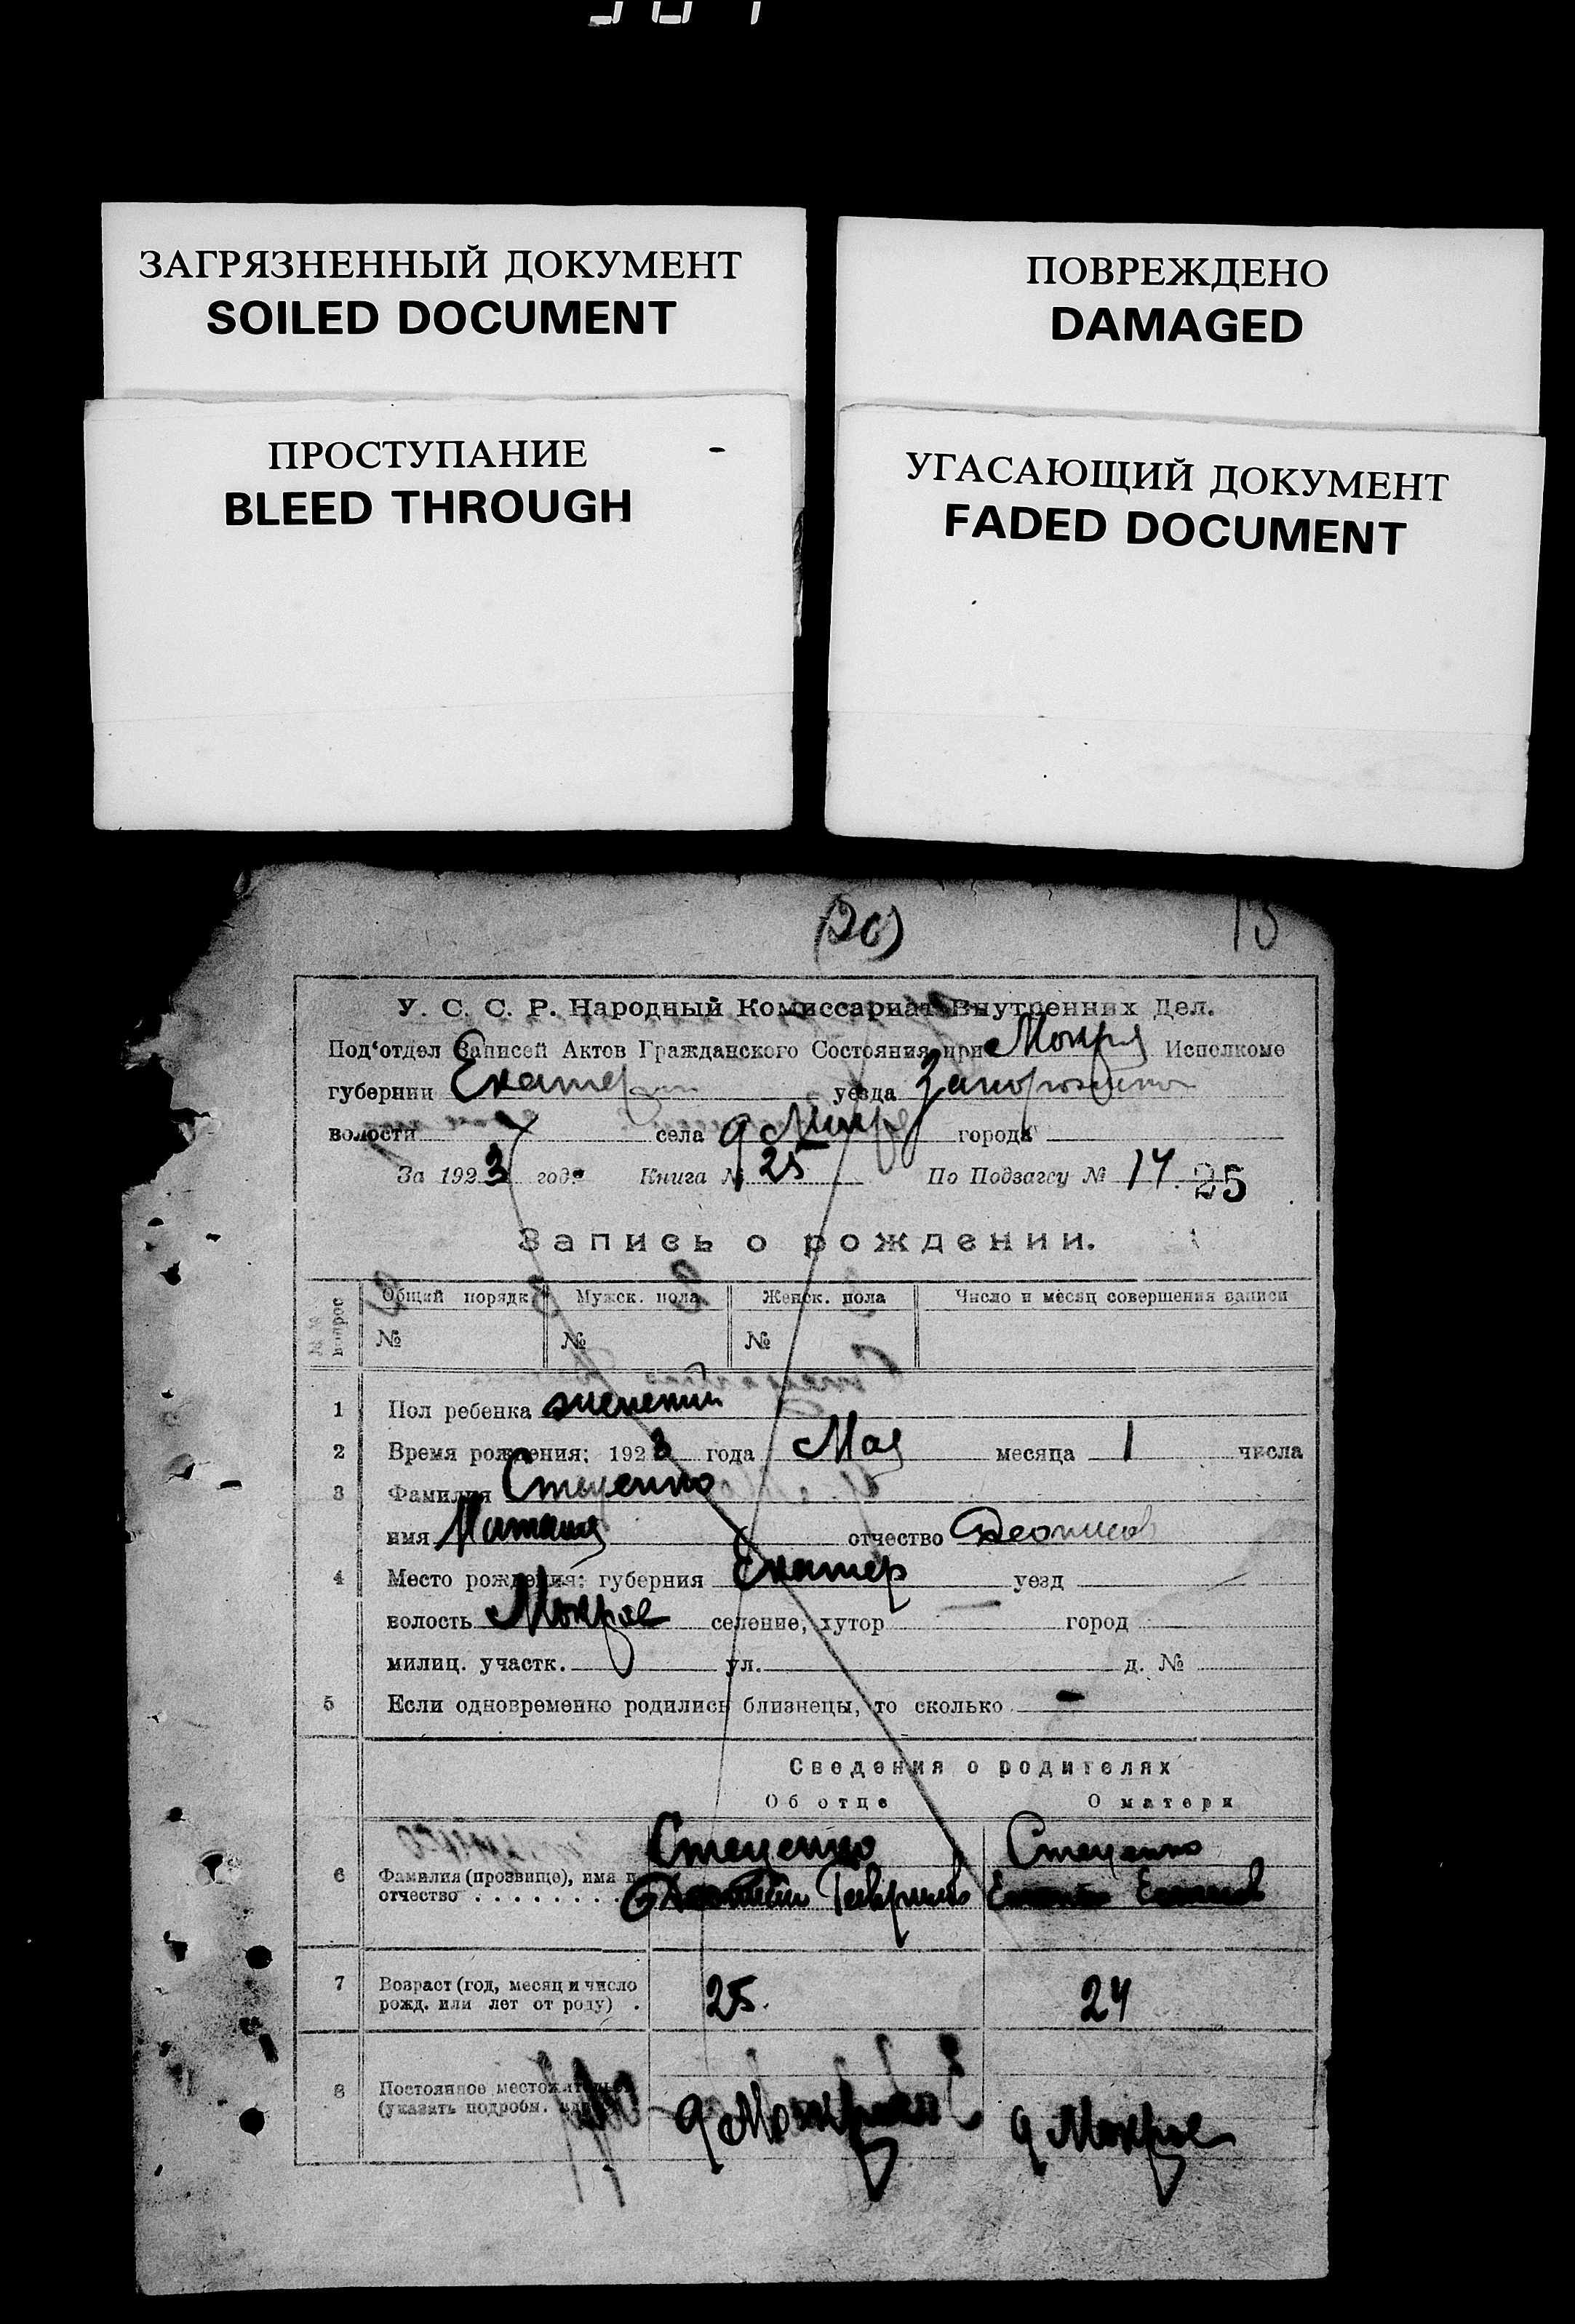 ЗАГРЯЗНЕННЫЙ ДОКУМЕНТ
SOILED DOCUMENT
ПОВРЕЖДЕНО
DAMAGED
ПРОСТУПАНИЕ
BLEED THROUGH
УГАСАЮЩИЙ ДОКУМЕНТ
FADED DOCUMENT
У. С. С. Р. Народный Комиссариат Внутренних Дел.
Под'отдел Записей Актов Гражданского Состояния при Исполкоме
губернии Екатер уезда Запорожского
волости села города
За 1923 года Книга № 25 По Подзагсу № 14. 25
Запись о рождении.
№№ вопрос
Общий порядк Мужск. пола Женск. пола Число и месяц совершения записи
№ № №
1 Пол ребенка женский
2 Время рождения: 1923 года Мая месяца 1 числа
3 Фамилия Стеценко
имя отчество
4 Место рождения: губерния Екатер уезд
волость Мокрое селение, хутор — город
милиц. участк. ул. д. №
5 Если одновременно родились близнецы, то сколько -
Сведения о родителях
Об отце О матери
Стеценко Стеценко
6 Фамилия (прозвище), имя и
отчество . . . . . . . .
7 Возраст (год, месяц и число
рожд. или лет от роду) . 25. 24
8 Постоянное местожительс
(указать подробн. д Мокрое